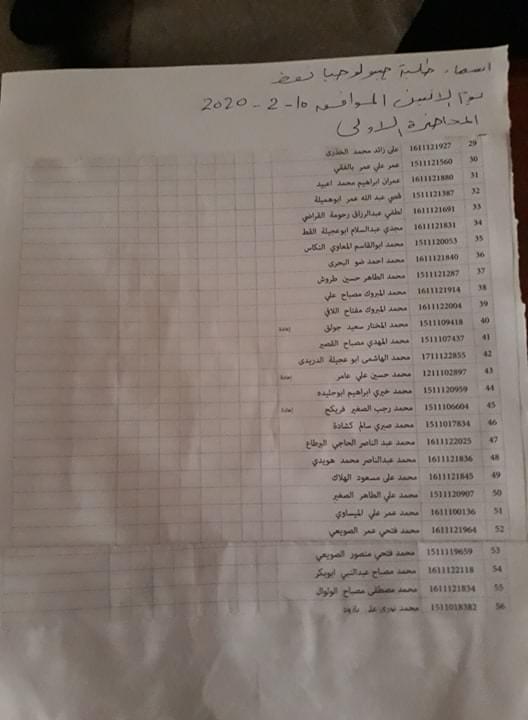 اسماء طلبة جيولوجيا نفط
يوم الاثنين الموافق 10-2-2020
المحاضرة الاولى
29 1611121927 على زائد محمد الخذرى
30 1511121560 عمر علي عمر بالفقي
31 1611121880 عمران ابراهيم محمد اعبيد
32 1511121387 قصي عبد الله عمر ابوهميلة
33 1611121691 لطفي عبدالرزاق رحومة القراضي
34 1611121831 مجدي عبدالسلام ابوعجيلة القط
35 1511120053 محمد ابوالقاسم المعاوي النكاس
36 1611121840 محمد احمد ضو البحرى
37 1511121287 محمد الطاهر حسين طروش
38 1611121914 محمد المبروك مصباح علي
39 1611122004 محمد المبروك مفتاح اللافي
40 1511109418 محمد المختار سعيد جولق إعادة
41 1511107437 محمد المهدي مصباح القصير
42 1711122855 محمد الهاشمى ابو عجيلة الدريدى
43 1211102897 محمد حسين علي عامر إعادة
44 1511120959 محمد خيري ابراهيم ابوحليده
45 1511106604 محمد رجب الصغير فريكح إعادة
46 1511017834 محمد صبري سالم كشادة
47 1611122025 محمد عبد الناصر الحاجي البرطاع
48 1611121836 محمد عبدالناصر محمد هويدي
49 1611121845 محمد على مسعود الهلاك
50 1511120907 محمد علي الطاهر الصغير
51 1611100136 محمد عمر علي الميساوي
52 1611121964 محمد فتحي عمر الصويعي
53 1511119659 محمد فتحي منصور الصويعي
54 1611122118 محمد مصباح عبدالنبي ابوبكر
55 1611121834 محمد مصطفى مصباح الولوال
56 1511018382 محمد نوري علي بارود